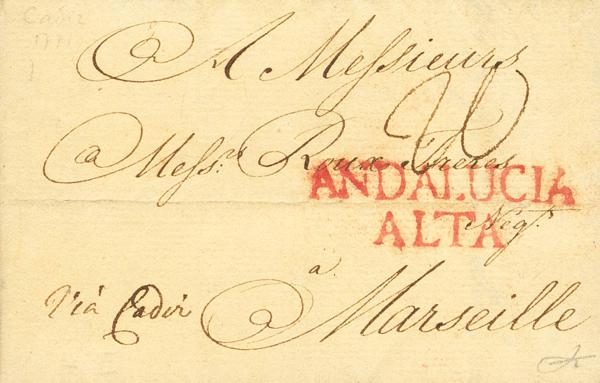 Cadiz
177
A Messieurs
20
a Mess.rs Roux Freres
ANDALUCIA
ALTA
Neg.ts
a
Viá Cadir Marseille